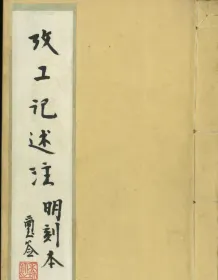 攷工记述注
明刻本